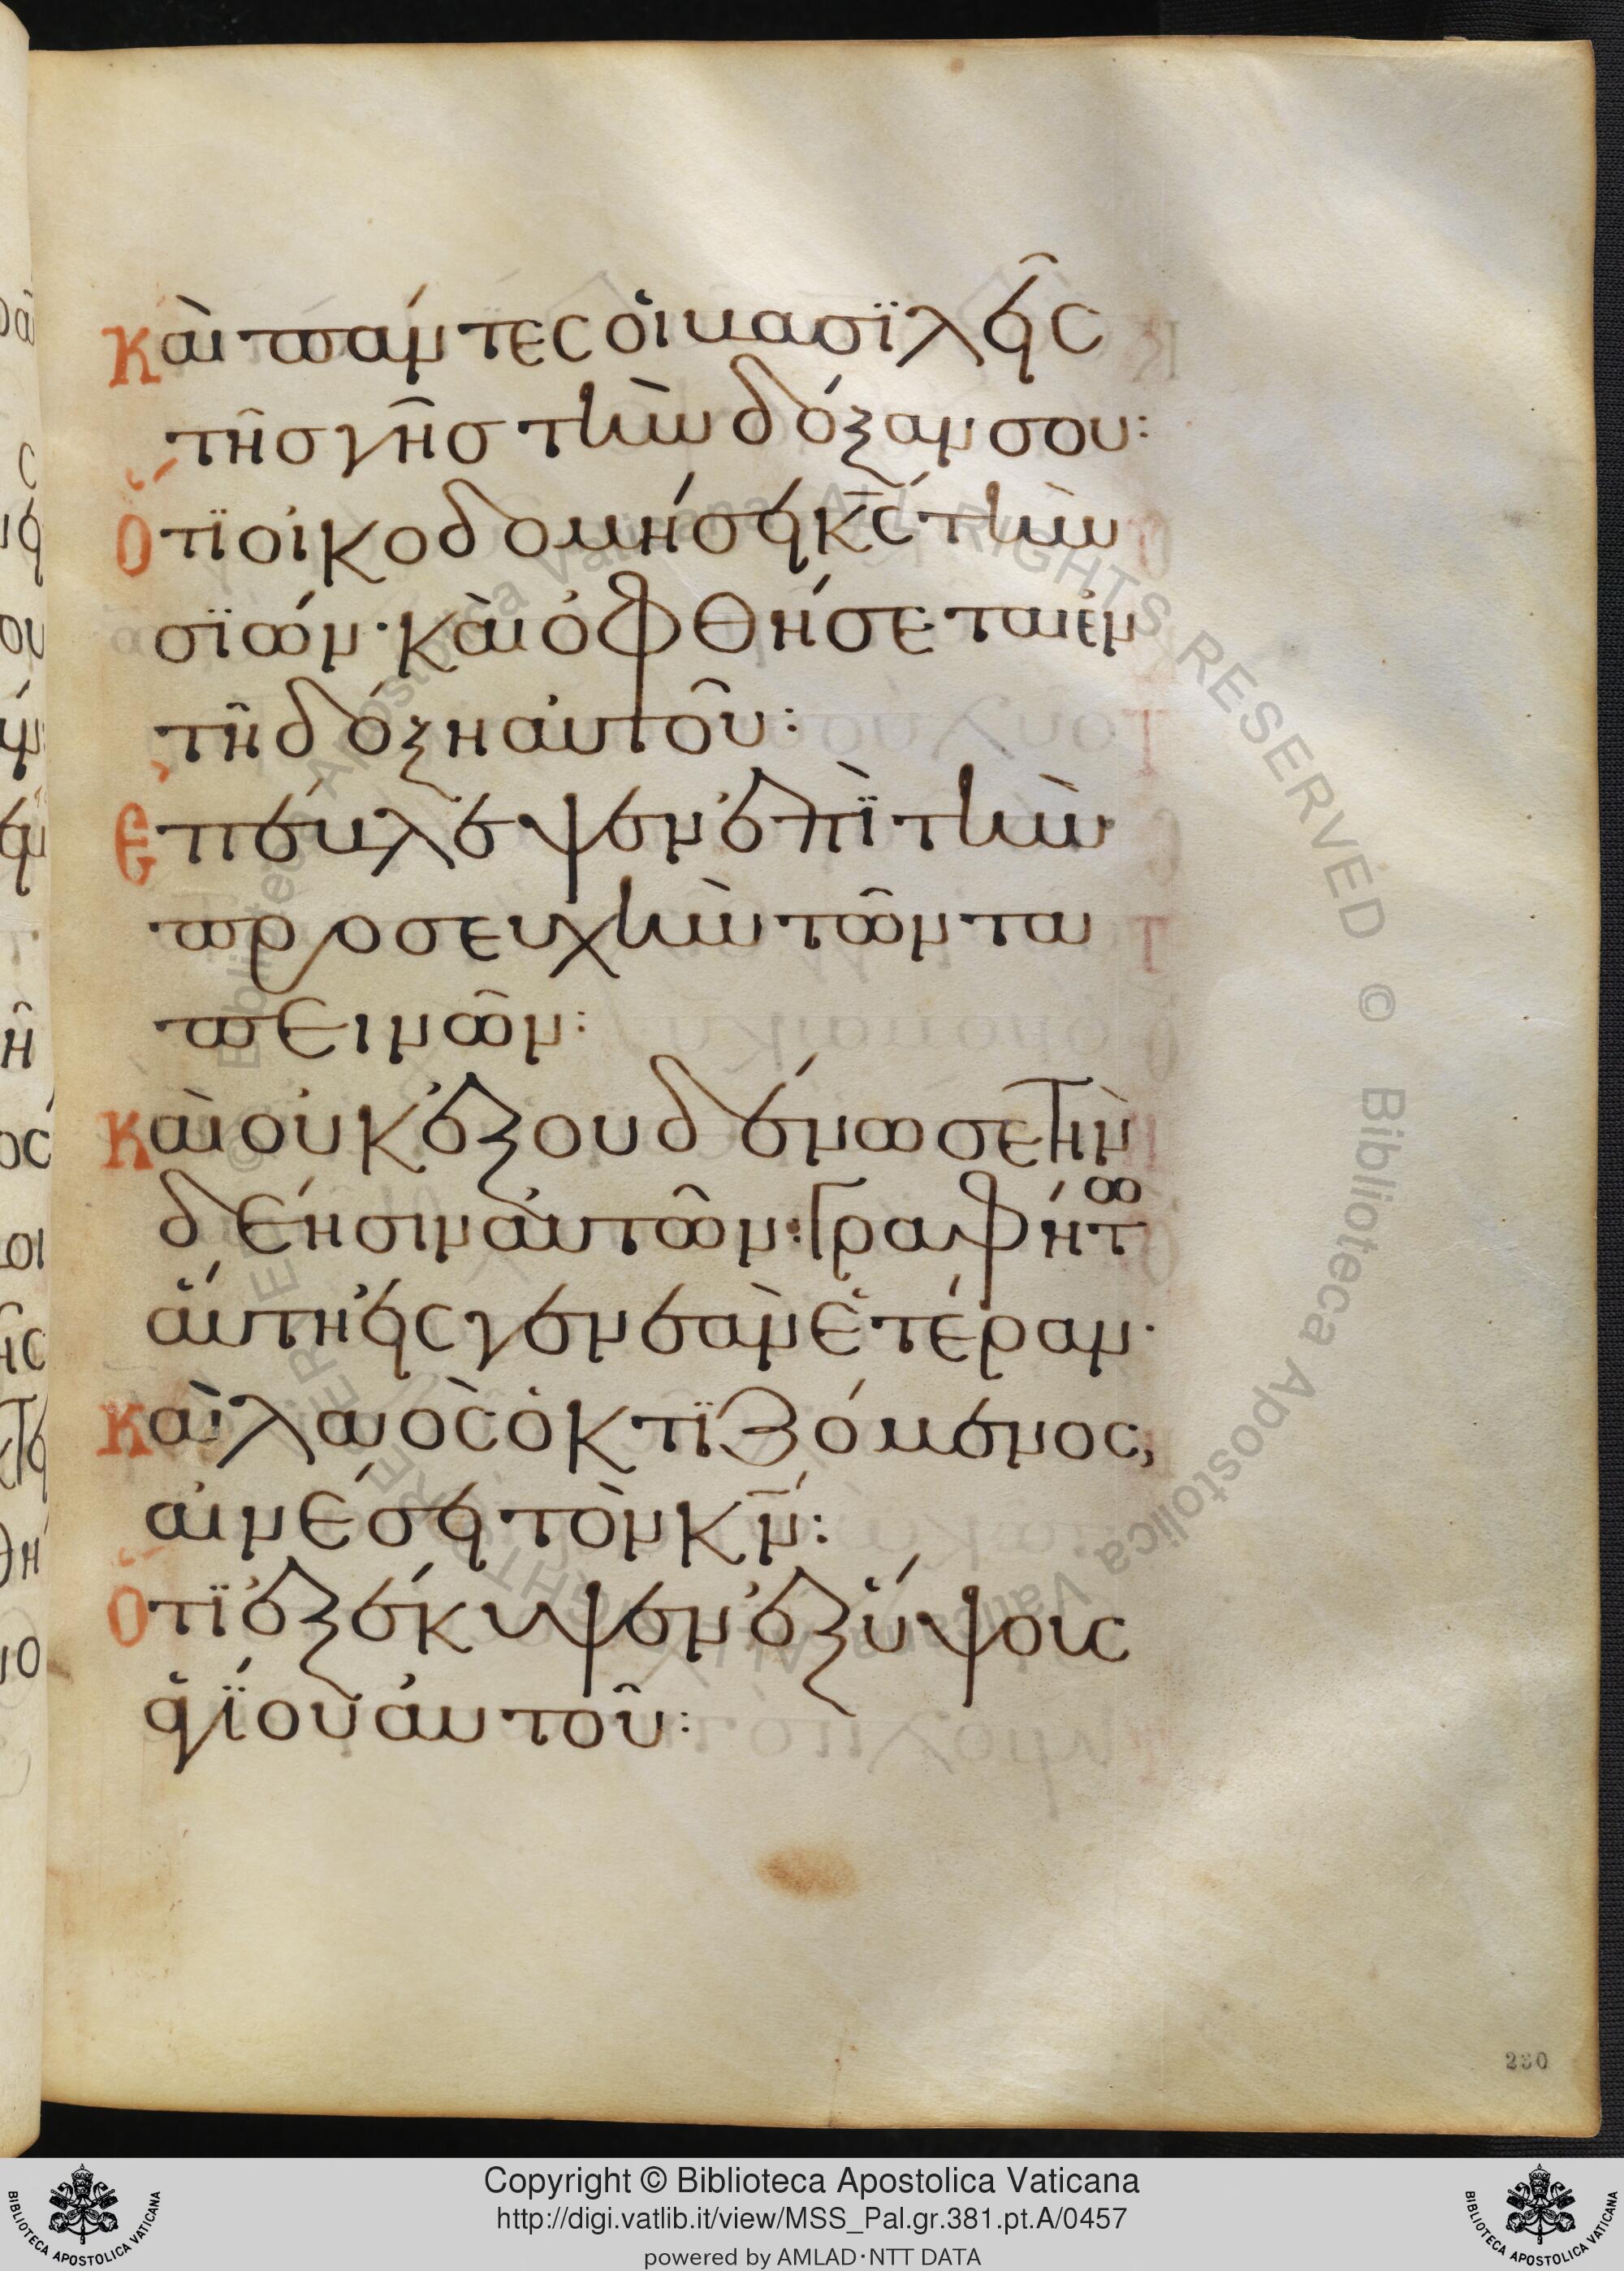 Καὶ πάντες οἱ βασϊλεῖς
τῆς γῆς τὴν δόξαν σου:
Ὅτϊ οἰκοδομήσει κ̅ς̅ τὴν
σϊών· καὶ ὀφθήσεται ἐν
τῆ δόξη αὐτοῦ:
Ἐπέβλεψεν ἐπϊ τὴν
προσευχὴν τῶν τα
πεινῶν:
Καὶ οὐκ ἐξουδένωσε τὴν
δέησιν αὐτῶν: Γραφήτω
αὕτη εἰς γενεὰν ἑτέραν·
Καὶ λαὸς ὁ κτϊζόμενος,
αἰνέσει τὸν κ̅ν̅:
Ὅτϊ ἐξέκυψεν ἐξ ὕψους
ἁγίου αὐτοῦ:
230
Copyright © Biblioteca Apostolica Vaticana
http://digi.vatlib.it/view/MSS_Pal.gr.381.pt.A/0457
powered by AMLAD·NTT DATA
BIBLIOTECA APOSTOLICA VATICANA
BIBLIOTECA APOSTOLICA VATICANA